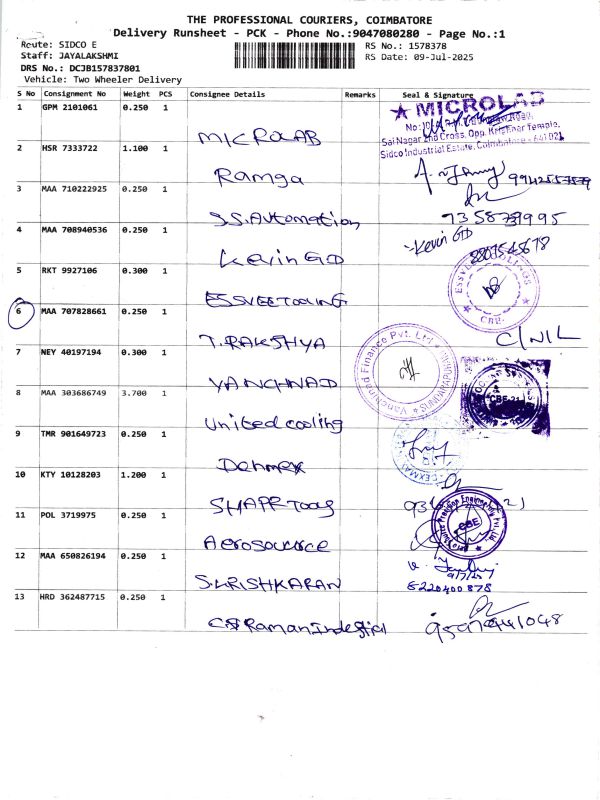 THE PROFESSIONAL COURIERS, COIMBATORE
Delivery Runsheet - PCK - Phone No.:9047080280 - Page No.:1
Route: SIDCO E RS No.: 1578378
Staff: JAYALAKSHMI RS Date: 09-Jul-2025
DRS No.: DCJB157837801
Vehicle: Two Wheeler Delivery
S No Consignment No Weight PCS Consignee Details Remarks Seal & Signature
1 GPM 2101061 0.250 1 MICROLAB
★ MICROLAB
Sai Nagar 2nd Cross, Opp. Krishnar Temple,
Sidco Industrial Estate, Coimbatore - 641 021
2 HSR 7333722 1.100 1 Ramga
3 MAA 710222925 0.250 1 S.S.Automation
4 MAA 708940536 0.250 1 Kevin GD Kevin GD
5 RKT 9927106 0.300 1 ESSVEE TOOLING
CBE
6 MAA 707828661 0.250 1 T. RAKSHYA C/N/L
7 NEY 40197194 0.300 1 VANCHNAD
Vanchinad Finance Pvt. Ltd
8 MAA 303686749 3.700 1 United cooling
CBE-21
9 TMR 901649723 0.250 1 Dehmex
10 KTY 10128203 1.200 1 SHARP Tools
11 POL 3719975 0.250 1 Aerosource
Precision Engineering Pvt. Ltd
CBE
12 MAA 650826194 0.250 1 S.URISHKARAN
9/7/25
6220400878
13 HRD 362487715 0.250 1 Raman Industrial